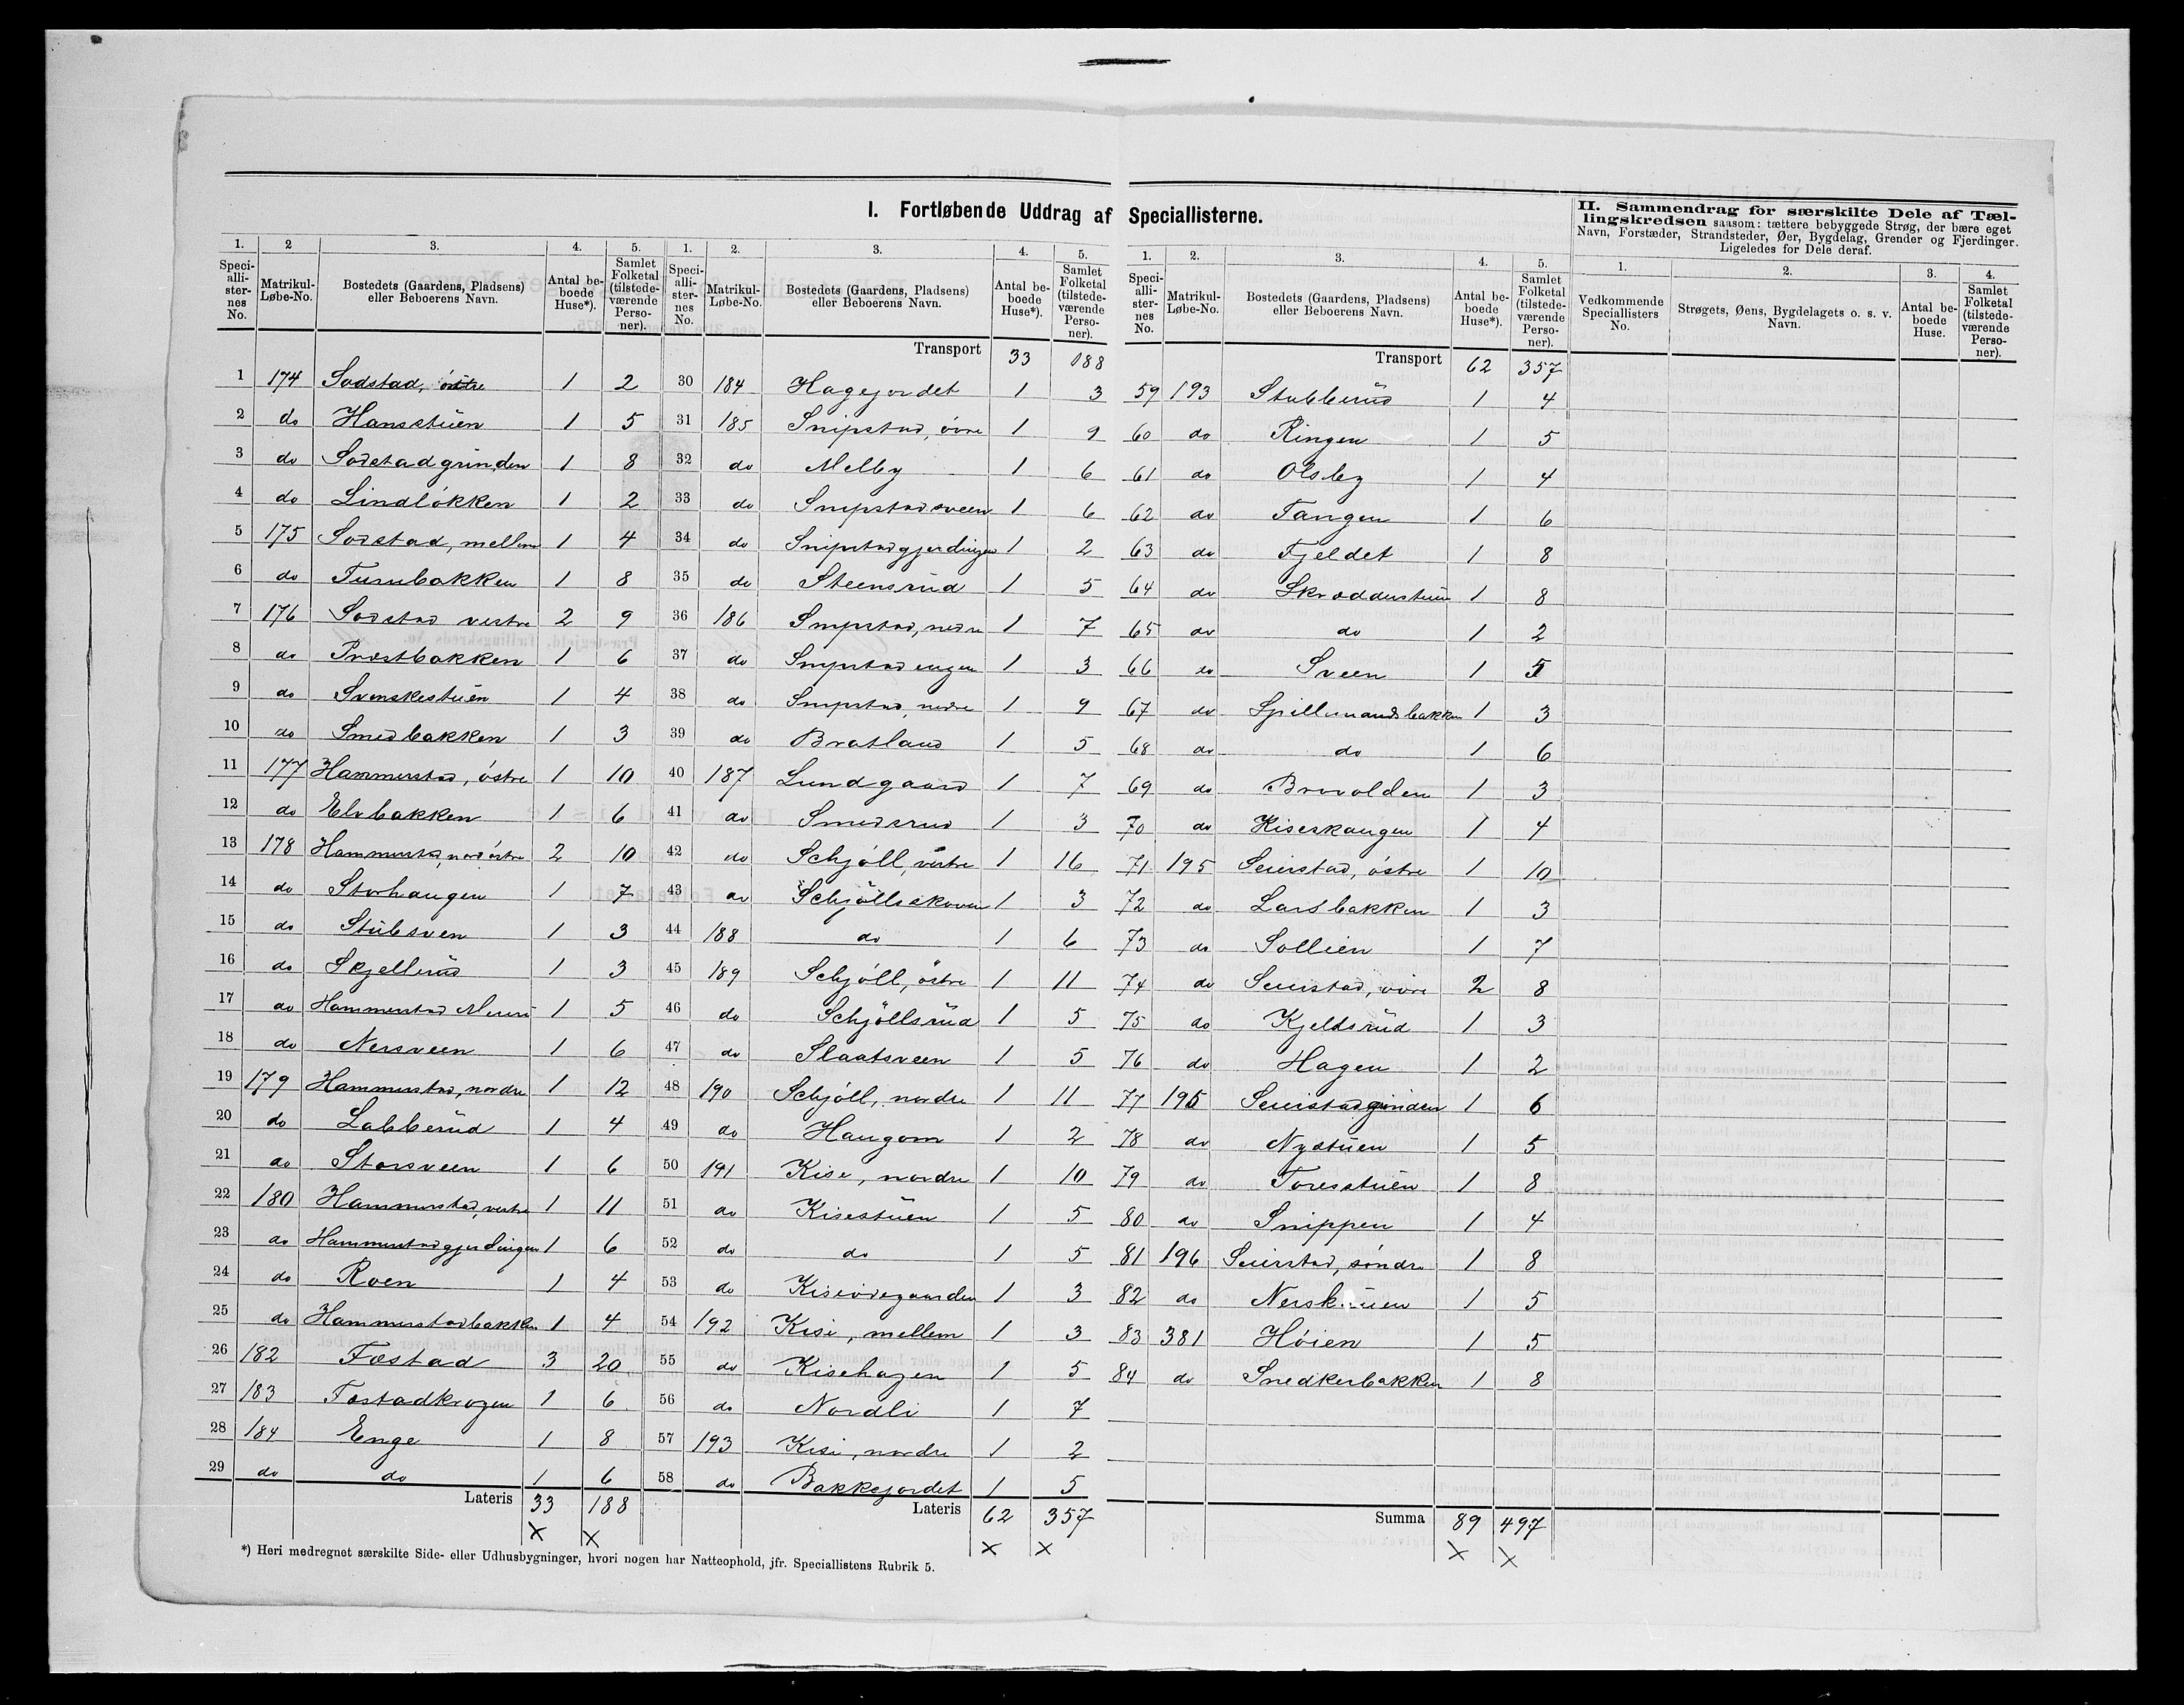 I. Fortløbende Uddrag af Speciallisterne.
II. Sammendrag for særskilte Dele af Tællingskredsen saasom: tættere bebyggede Strøg, der bære eget
Navn, Forstæder, Strandsteder, Øer, Bygdelag, Grender og Fjerdinger.
Ligeledes for Dele deraf.
1. 2 3. 4. 5.
Speciallisternes No. Matrikul-Løbe-No. Bostedets (Gaardens, Pladsens) eller Beboerens Navn. Antal beboede Huse*). Samlet Folketal (tilstedeværende Personer).
1 174 Sodstad, östre 1 2
2 do Hansstuen 1 5
3 do Sodstadgrinden 1 8
4 do Lindlökken 1 2
5 175 Sodstad, mellem 1 4
6 do Tuinbakken 1 8
7 176 Sodstad vestre 2 9
8 do Præstbakken 1 6
9 do Svenskestuen 1 4
10 do Smedbakken 1 3
11 177 Hammerstad, östre 1 10
12 do Elvbakken 1 6
13 178 Hammerstad, nordöstre 2 10
14 do Storhaugen 1 7
15 do Stubsven 1 3
16 do Skjellerud 1 3
17 do Hammerstad 1 5
18 do Nersveen 1 6
19 179 Hammerstad, nordre 1 12
20 do Labberud 1 4
21 do Storsveen 1 6
22 180 Hammerstad, vestre 1 11
23 do Hammerstadgjerdingen 1 6
24 do Roen 1 4
25 do Hammerstadbakken 1 4
26 182 Fæstad 3 20
27 183 Fæstadkrogen 1 6
28 184 Enge 1 8
29 do do 1 6
Lateris 33 188
1. 2. 3. 4. 5.
Speciallisternes No. Matrikul-Løbe-No. Bostedets (Gaardens, Pladsens) eller Beboerens Navn. Antal beboede Huse*). Samlet Folketal (tilstedeværende Personer).
Transport 33 188
30 184 Hagejordet 1 3
31 185 Snipstad, övre 1 9
32 do Melby 1 6
33 do Snipstadsveen 1 6
34 do Snipstadgjerdingen 1 2
35 do Steensrud 1 5
36 186 Snipstad, nedre 1 7
37 do Snipstadengen 1 3
38 do Snipstad, nedre 1 9
39 do Bratland 1 5
40 187 Lundgaard 1 7
41 do Smedsrud 1 3
42 do Schjöll, vestre 1 16
43 do Schjöllsskoven 1 3
44 188 do 1 6
45 189 Schjöll, östre 1 11
46 do Schjöllsrud 1 5
47 do Slaatsveen 1 5
48 190 Schjöll, nordre 1 11
49 do Haugom 1 2
50 191 Kise, nordre 1 10
51 do Kisestuen 1 5
52 do do 1 5
53 do Kiseödegaarden 1 3
54 192 Kise, mellem 1 3
55 do Kisehagen 1 5
56 do Nordli 1 7
57 193 Kise, nordre 1 2
58 do Bakkejordet 1 5
Lateris 62 357
1. 2. 3. 4. 5.
Speciallisternes No. Matrikul-Løbe-No. Bostedets (Gaardens, Pladsens) eller Beboerens Navn. Antal beboede Huse*). Samlet Folketal (tilstedeværende Personer).
Transport 62 357
59 193 Stubberud 1 4
60 do Ringen 1 5
61 do Olsby 1 4
62 do Tangen 1 6
63 do Fjeldet 1 8
64 do Skrædderstuen 1 8
65 do do 1 2
66 do Sveen 1 5
67 do Spillemandsbakken 1 3
68 do do 1 6
69 do Brovolden 1 3
70 do Kiseskaugen 1 4
71 195 Seierstad, östre 1 10
72 do Larsbakken 1 3
73 do Sollien 1 7
74 do Seierstad, övre 2 8
75 do Kjeldsrud 1 3
76 do Hagen 1 2
77 195 Seierstadgrinden 1 6
78 do Nystuen 1 5
79 do Toresstuen 1 8
80 do Snippen 1 4
81 196 Seierstad, söndre 1 8
82 do 1 5
83 381 Höien 1 5
84 do Snedkerbakken 1 8
Summa 89 497
1. 2. 3. 4.
Vedkommende Speciallisters No. Strøgets, Øens, Bygdelagets o. s. v. Navn. Antal beboede Huse. Samlet Folketal (tilstedeværende Personer).
*) Heri medregnet særskilte Side- eller Udhusbygninger, hvori nogen har Natteophold, jfr. Speciallistens Rubrik 5.